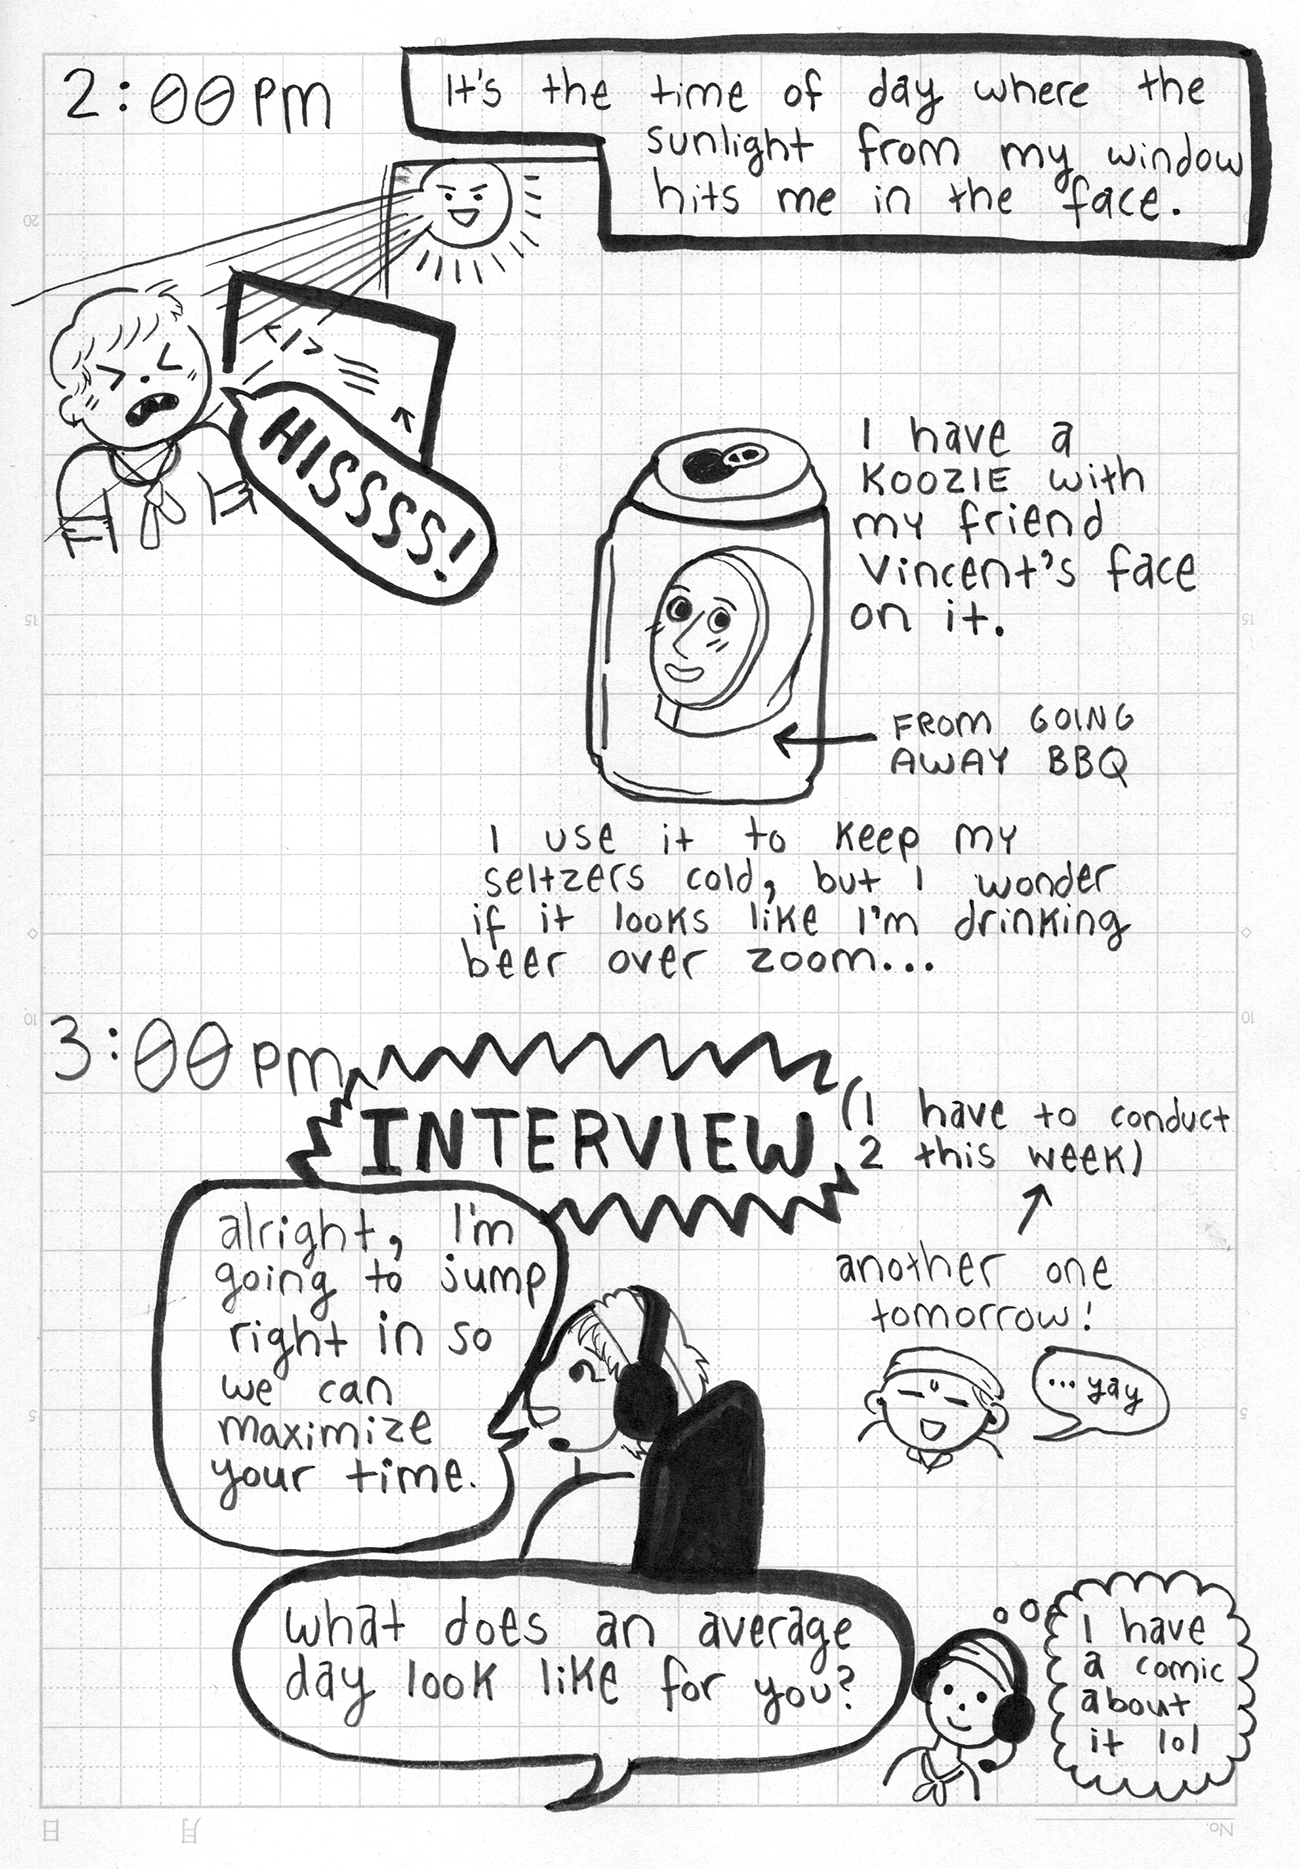 2:00 pm
It's the time of day where the
sunlight from my window
hits me in the face.
</>
HISSSS!
I have a
KOOZIE with
my friend
Vincent's face
on it.
FROM GOING
AWAY BBQ
I use it to keep my
seltzers cold, but I wonder
if it looks like I'm drinking
beer over zoom...
3:00 pm
INTERVIEW
(I have to conduct
2 this week)
another one
tomorrow!
... yay
alright, I'm
going to jump
right in so
we can
maximize
your time.
what does an average
day look like for you?
I have
a comic
about
it lol
10
20
15
15
10
10
5
5
日
月
No.